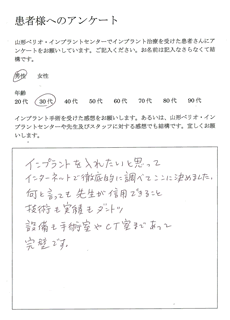 患者様へのアンケート
山形ペリオ・インプラントセンターでインプラント治療を受けた患者さんにア
ンケートをお願いしています。ご記入ください。お名前は記入なさらなくて結
構です。
男性 女性
年齢
20代 30代 40代 50代 60代 70代 80代 90代
インプラント手術を受けた感想をお願いします。あるいは、山形ペリオ・イン
プラントセンターや先生及びスタッフに対する感想でも結構です。宜しくお願
いします。
インプラントを入れたいと思って
インターネットで徹底的に調べてここに決めました。
何と言っても先生が信用できること
技術も実績もダントツ
設備も手術室やCT室まであって
完璧です。